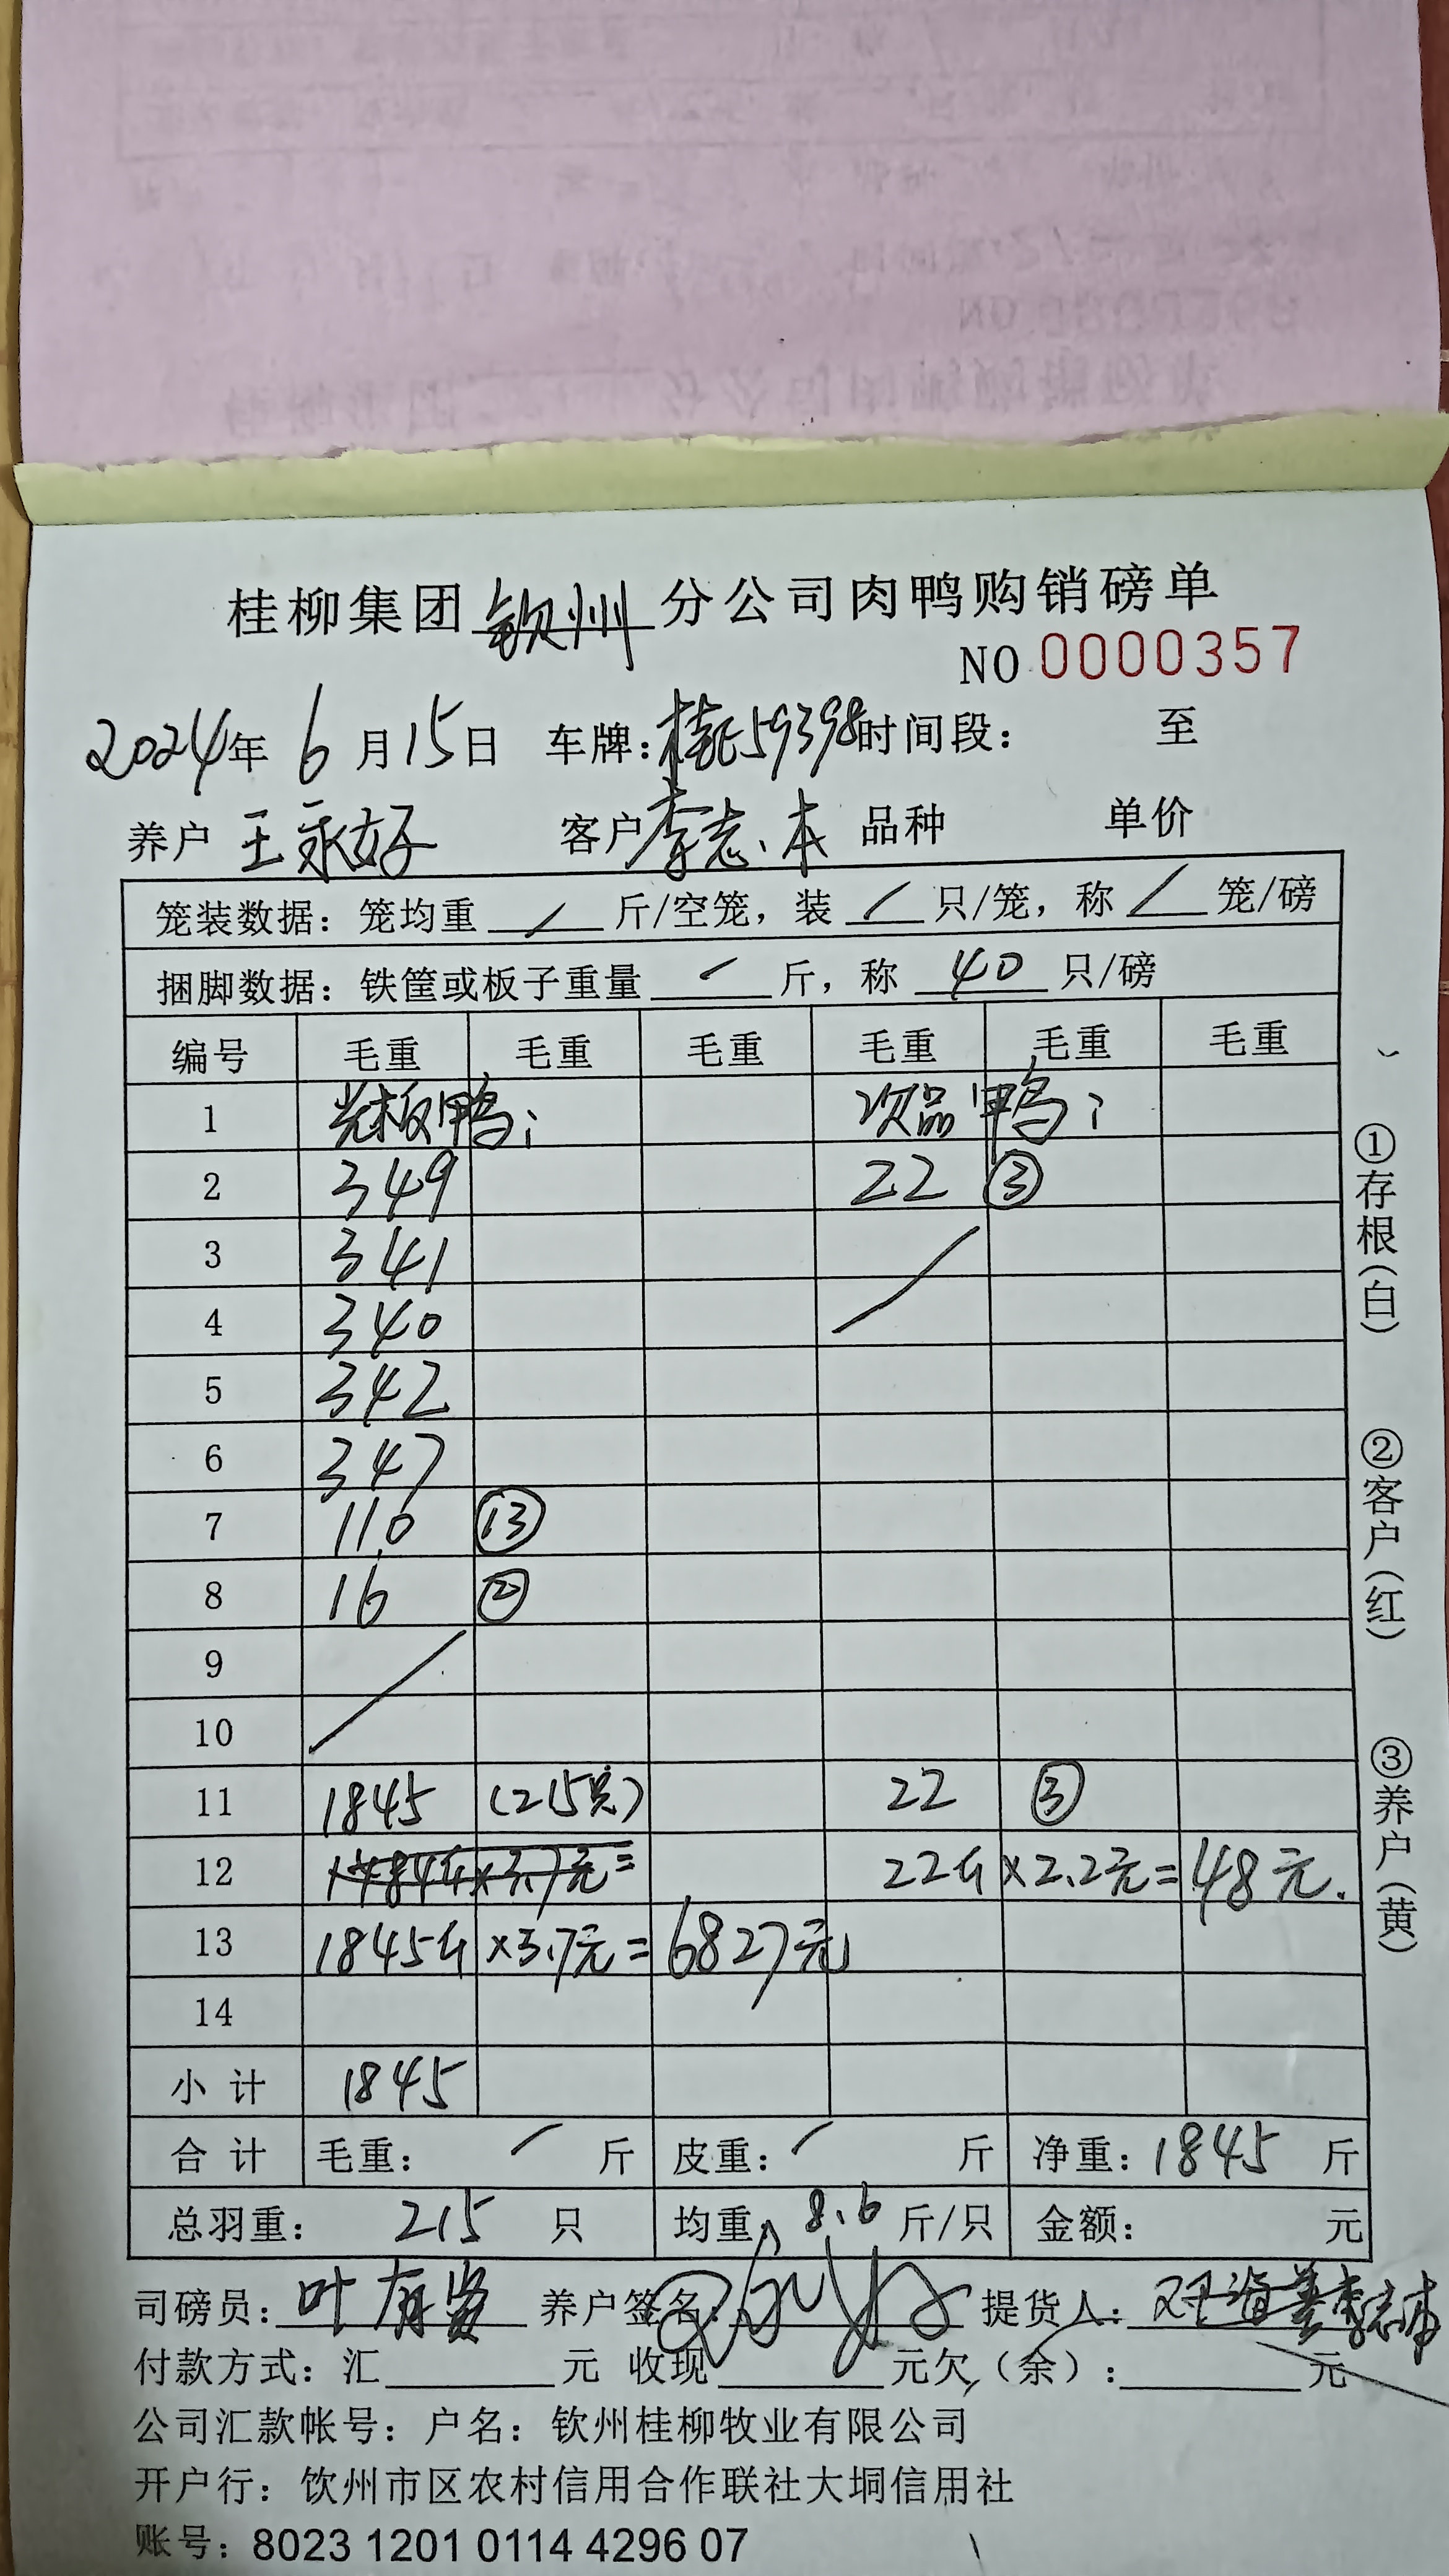 桂柳集团钦州分公司肉鸭购销磅单
NO 0000357
2024年 6月15日 车牌:桂E59398时间段: 至
养户 王永好 客户李志本 品种 单价
笼装数据: 笼均重 / 斤/空笼, 装 / 只/笼, 称 / 笼/磅
捆脚数据: 铁筐或板子重量 / 斤, 称 40 只/磅
编号 毛重 毛重 毛重 毛重 毛重 毛重
1 光板鸭: 次品鸭:
2 349 22 ③
3 341
4 340
5 342
6 347
7 110 ⑬
8 16 ②
9
10
11 1845 (215只) 22 ③
12 22斤×2.2元=48元.
13 1845斤×3.7元=6827元
14
小计 1845
合计 毛重: / 斤 皮重: / 斤 净重: 1845 斤
总羽重: 215 只 均重 8.6 斤/只 金额: 元
司磅员: 叶有 养户签名: 提货人:
付款方式: 汇 元 收现 元欠(余): 元
公司汇款帐号: 户名: 钦州桂柳牧业有限公司
开户行: 钦州市区农村信用合作联社大垌信用社
账号: 8023 1201 0114 4296 07
①存根(白)
②客户(红)
③养户(黄)